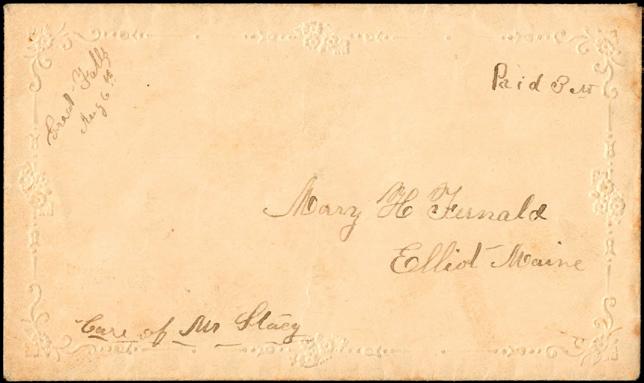 Great Falls
Aug 6 th
Paid 3
Mary H Fernald
Elliot Maine
Care of Mr Stacy